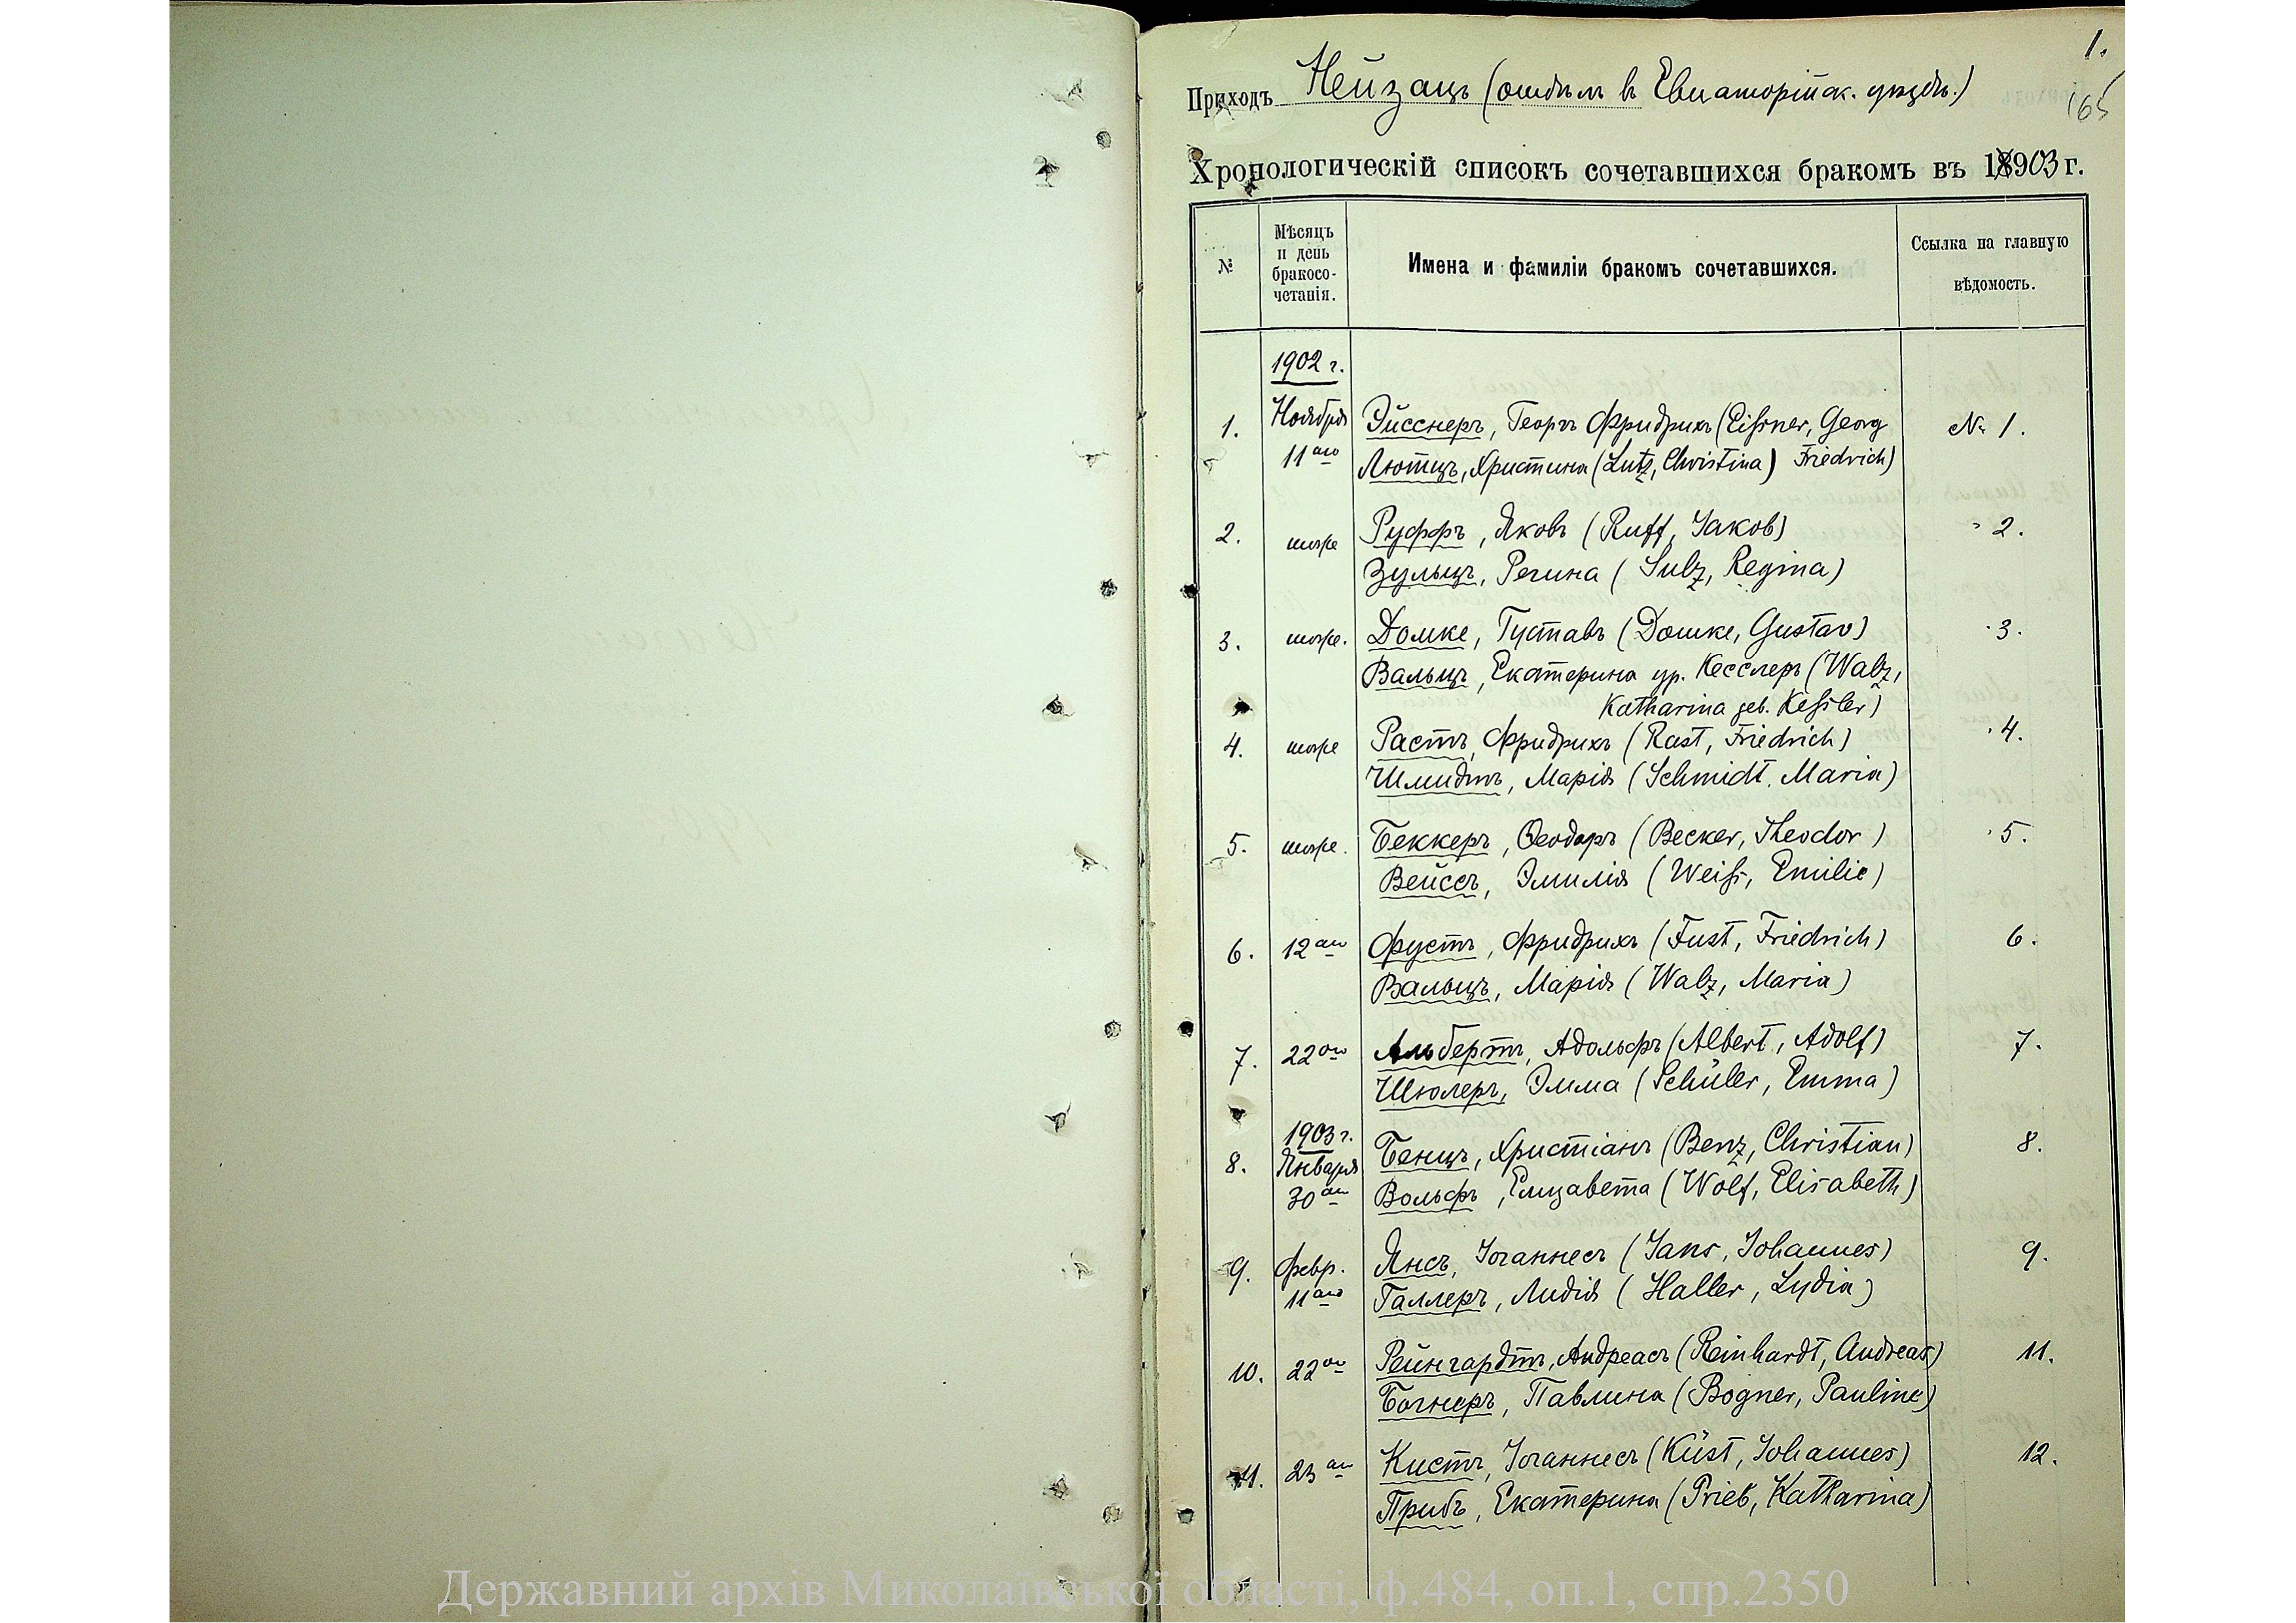 1.
165
Приходъ Нейзацъ (отдѣлъ въ Евпаторійск. уѣздѣ.)
Хронологическій списокъ сочетавшихся бракомъ въ 18903 г.
№ Мѣсяцъ и день бракосо-четанія. Имена и фамиліи бракомъ сочетавшихся. Ссылка на главную вѣдомость.
1902 г.
1. Ноября Эйсснеръ, Георгъ Фридрихъ (Eißner, Georg № 1.
11го Лютцъ, Христина (Lutz, Christina) Friedrich)
2. тоже Руффъ, Яковъ (Ruff, Jakob) " 2.
Зульцъ, Регина (Sulz, Regina)
3. тоже. Домке, Густавъ (Domke, Gustav) " 3.
Вальцъ, Екатерина ур. Кесслеръ (Walz,
Katharina geb. Keßler)
4. тоже Растъ, Фридрихъ (Rast, Friedrich) " 4.
Шмидтъ, Марія (Schmidt, Maria)
5. тоже. Беккеръ, Ѳеодоръ (Becker, Theodor) " 5.
Вейссъ, Эмилія (Weiß, Emilie)
6. 12го Фустъ, Фридрихъ (Fust, Friedrich) 6.
Вальцъ, Марія (Walz, Maria)
7. 22го Альбертъ, Адольфъ (Albert, Adolf) 7.
Шюлеръ, Эмма (Schüler, Emma)
1903 г.
8. Января Бенцъ, Христіанъ (Benz, Christian) 8.
30го Вольфъ, Елизавета (Wolf, Elisabeth)
9. Февр. Янсъ, Іоаннесъ (Jans, Johannes) 9.
11го Галлеръ, Лидія (Haller, Lydia)
10. 22го Рейнгардтъ, Андреасъ (Reinhardt, Andreas) 11.
Богнеръ, Павлина (Bogner, Pauline)
11. 23го Кистъ, Іоганнесъ (Küst, Johannes) 12.
Прибъ, Екатерина (Prieb, Katharina)
Державний архів Миколаївської області, ф.484, оп.1, спр.2350